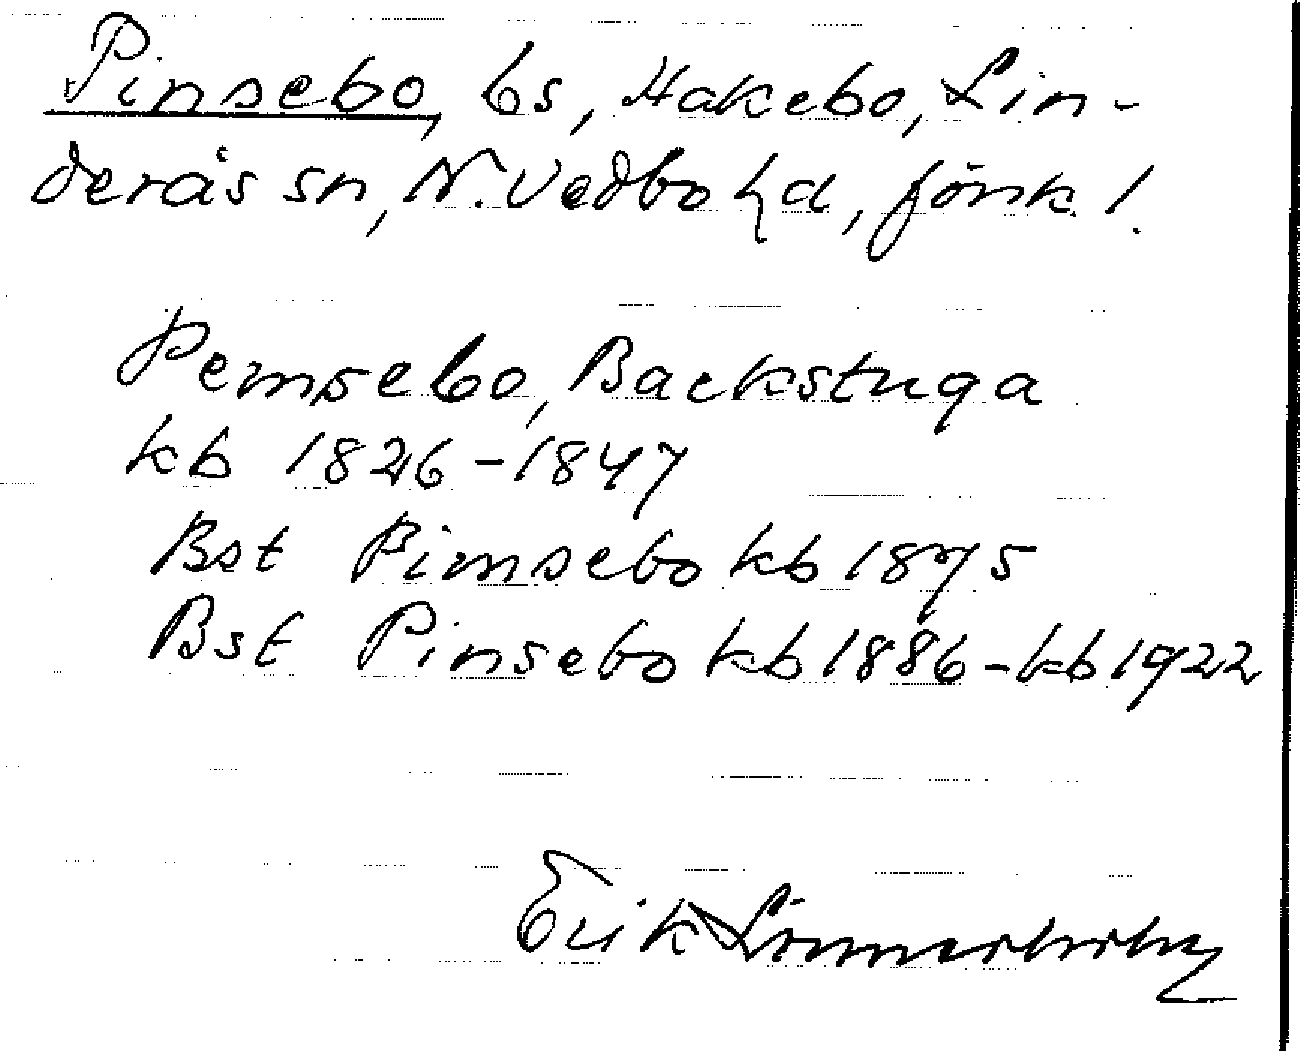 Pinsebo, bs, Hakebo, Lin-
derås sn, N. Vedbo hd, Jönk l.
Pemsebo, Backstuga
kb 1826-1847
Bst Pimsebo kb 1875
Bst Pinsebo kb 1886-kb 1922
Erik